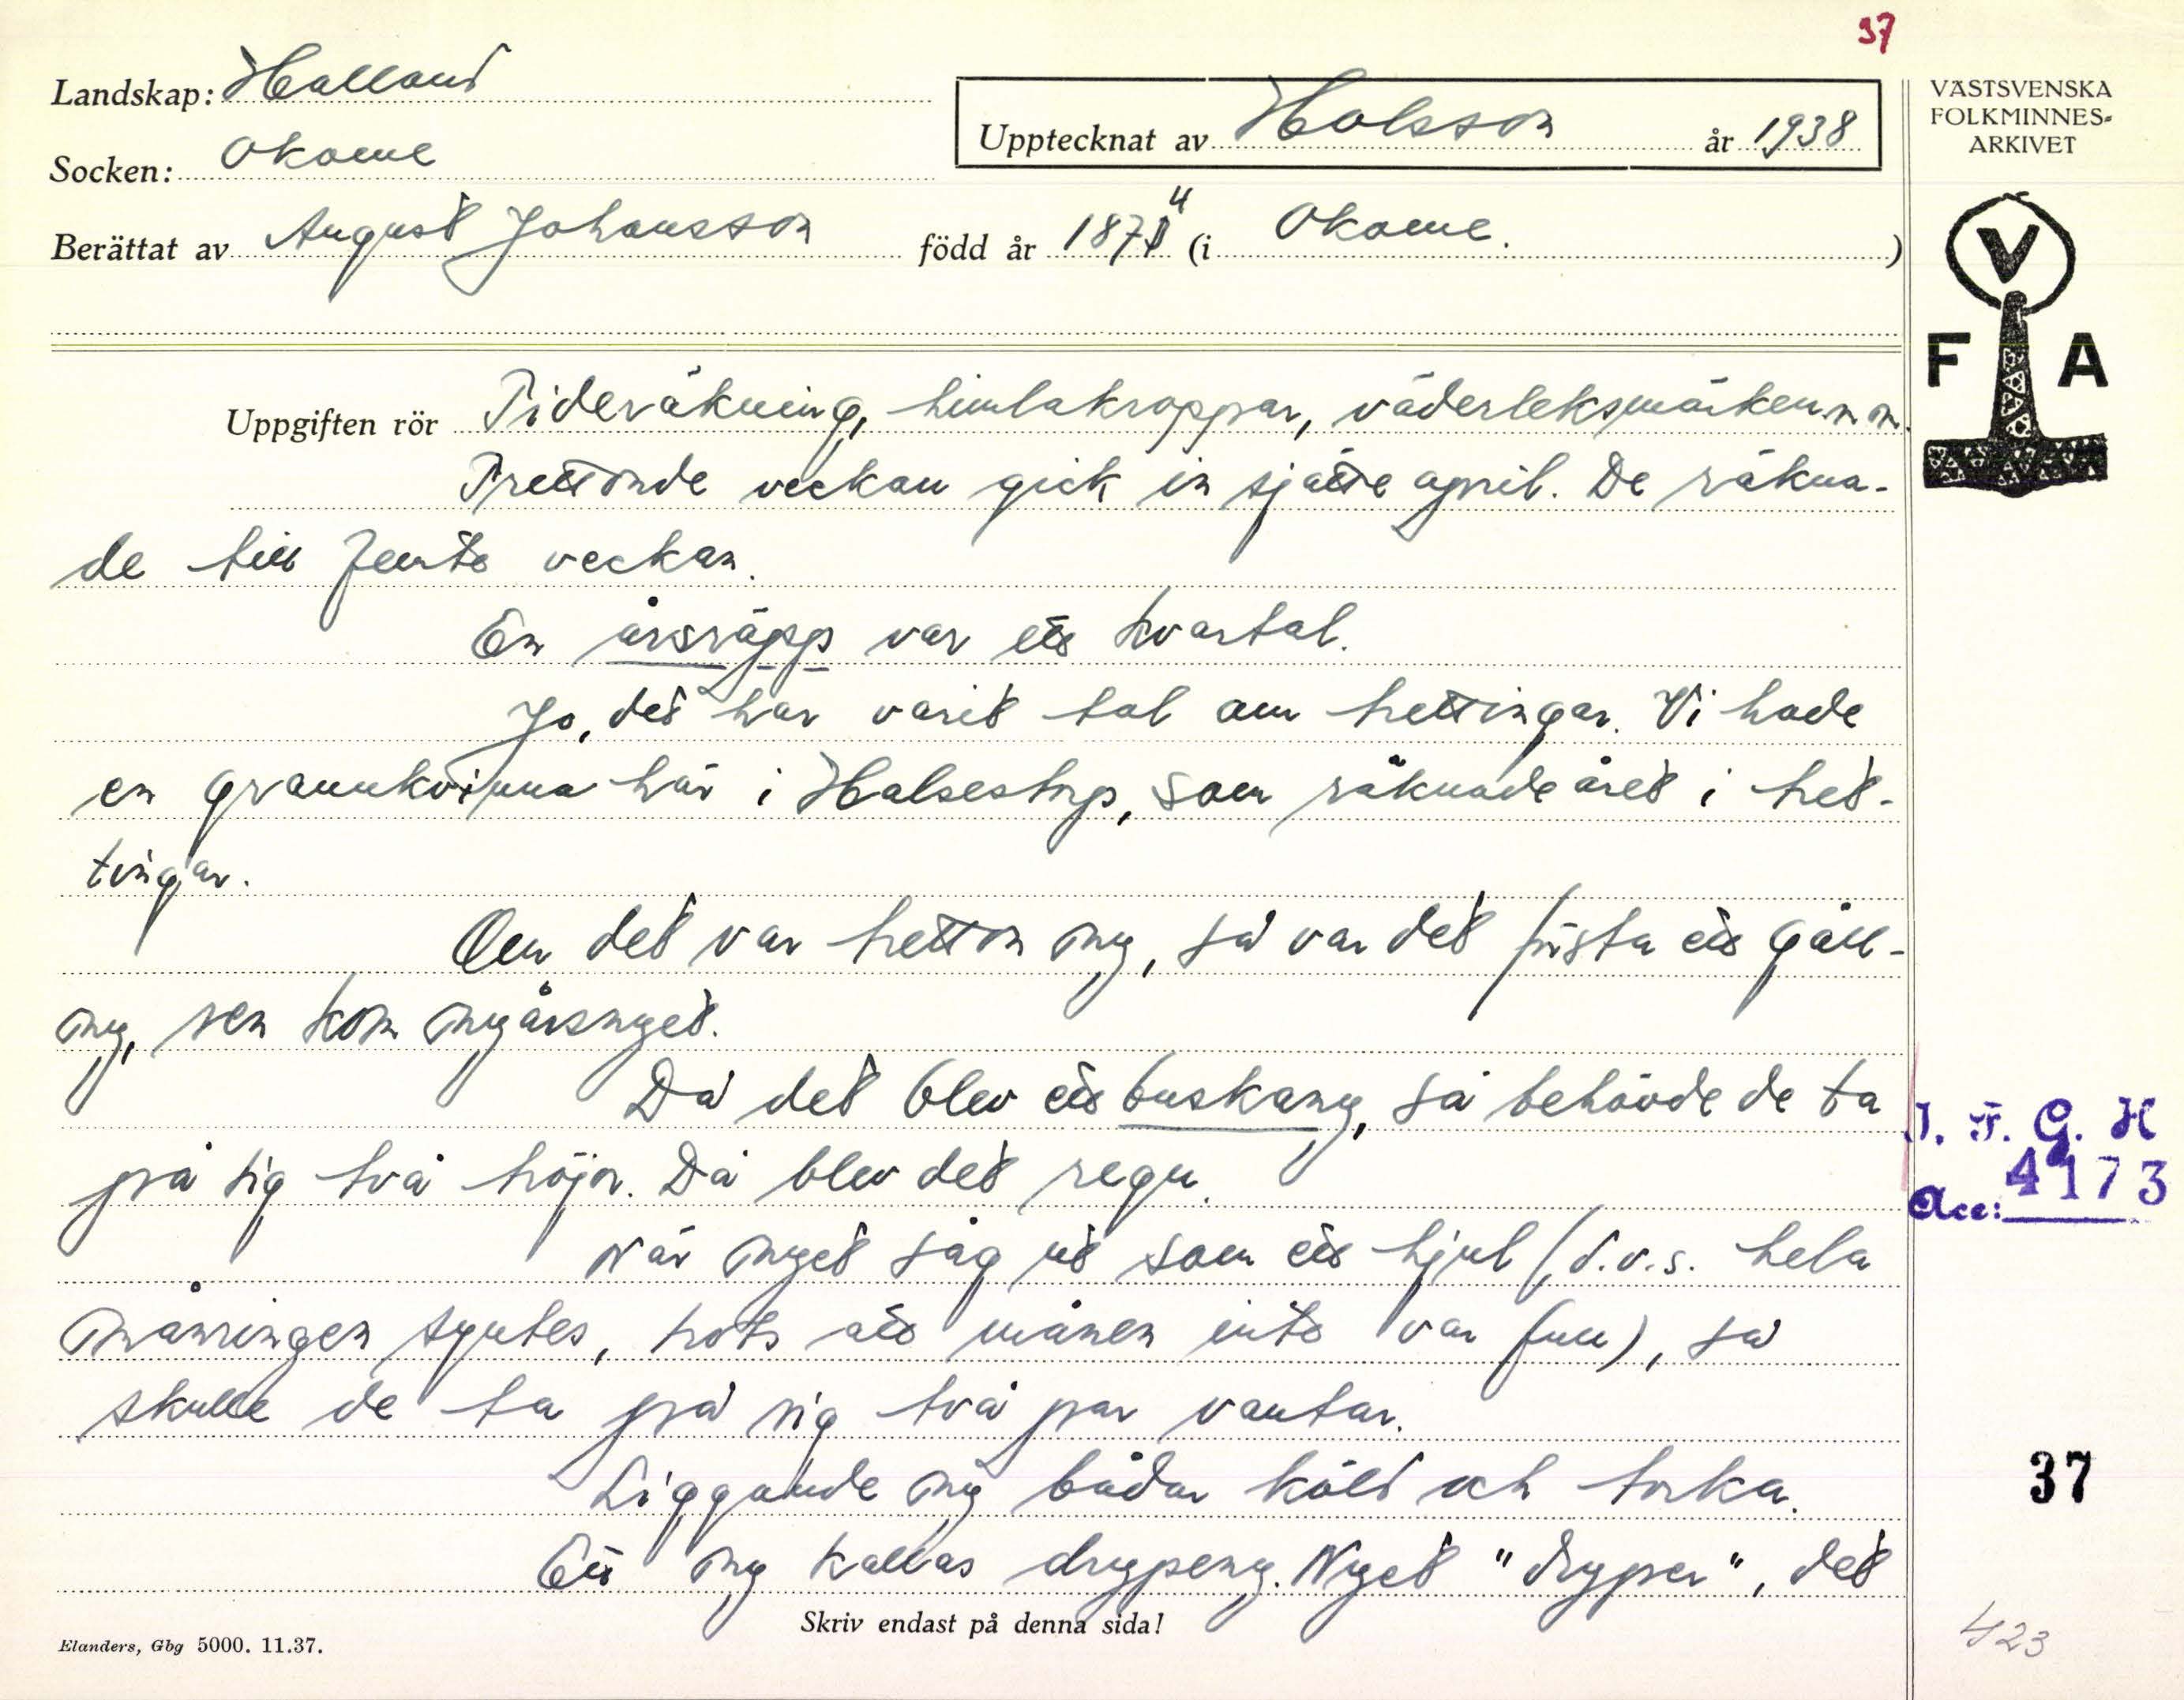 37
Landskap: Halland
Upptecknat av Holsson år 1938
VÄSTSVENSKA
FOLKMINNES-
ARKIVET
Socken: Okome
Berättat av August Johansson född år 1874 (i Okome.)
V
F A
Uppgiften rör Tideräkning, himlakroppar, väderleksmärken m m.
Trettonde veckan gick in sjätte april. De räkna-
de till femte veckan.
En årsräpp var ett kvartal.
Jo, det har varit tal om trettingar. Vi hade
en grannkvinna här i Halsestorp, som räknade året i tret-
tingar.
Om det var tretton ny, så var det första ett gäll-
ny, sen kom nyårsnyet.
Då det blev ett buskany, så behövde de ta
på sig två tröjor. Då blev det regn.
När nyet såg ut som ett hjul (d.v.s. hela
månringen syntes, trots att månen inte var full), så
skulle de ta på sig två par vantar.
Liggande ny bådar köld och torka.
Ett ny kallas drypeny. Nyet "dryper", det
I. F. G. H
Acc: 4173
37
Skriv endast på denna sida!
Elanders, Gbg 5000. 11.37.
423